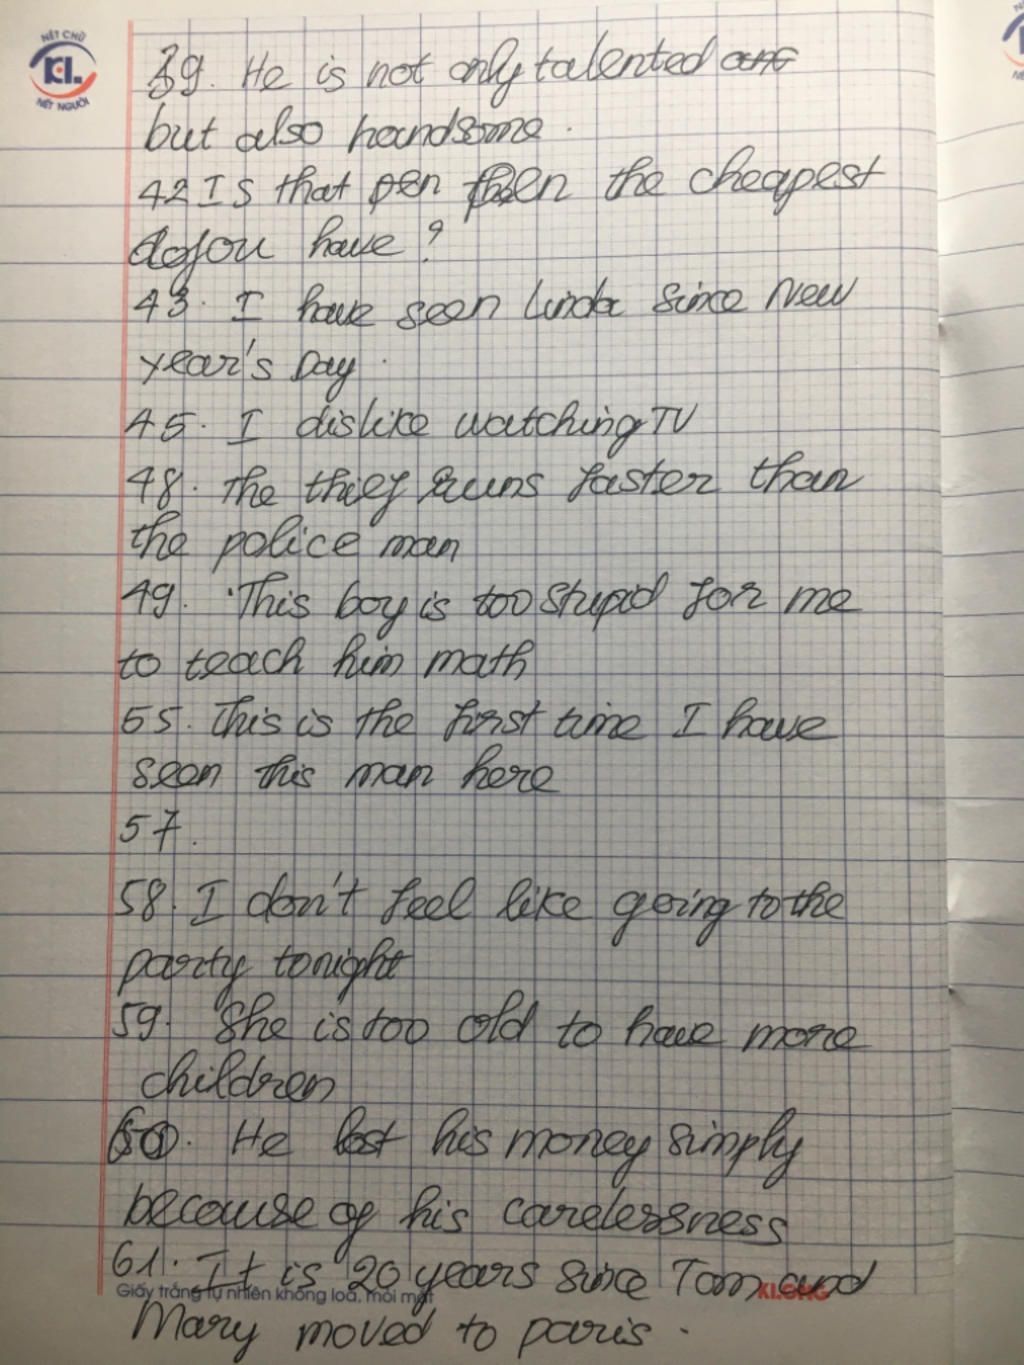 NÉT CHỮ
KL.
NẾT NGƯỜI
39. He is not only talented
but also handsome.
42 Is that pen the cheapest
do you have?
43. I have seen Linda since New
year's Day.
45. I dislike watching TV
48. The thief runs faster than
the police man
49. This boy is too stupid for me
to teach him math
55. This is the first time I have
seen this man here
57.
58. I don't feel like going to the
party tonight
59. She is too old to have more
children
60. He lost his money simply
because of his carelessness
61. It is 20 years since Tom and
Giấy trắng tự nhiên không loá, mỏi mắt KLONG
Mary moved to paris.